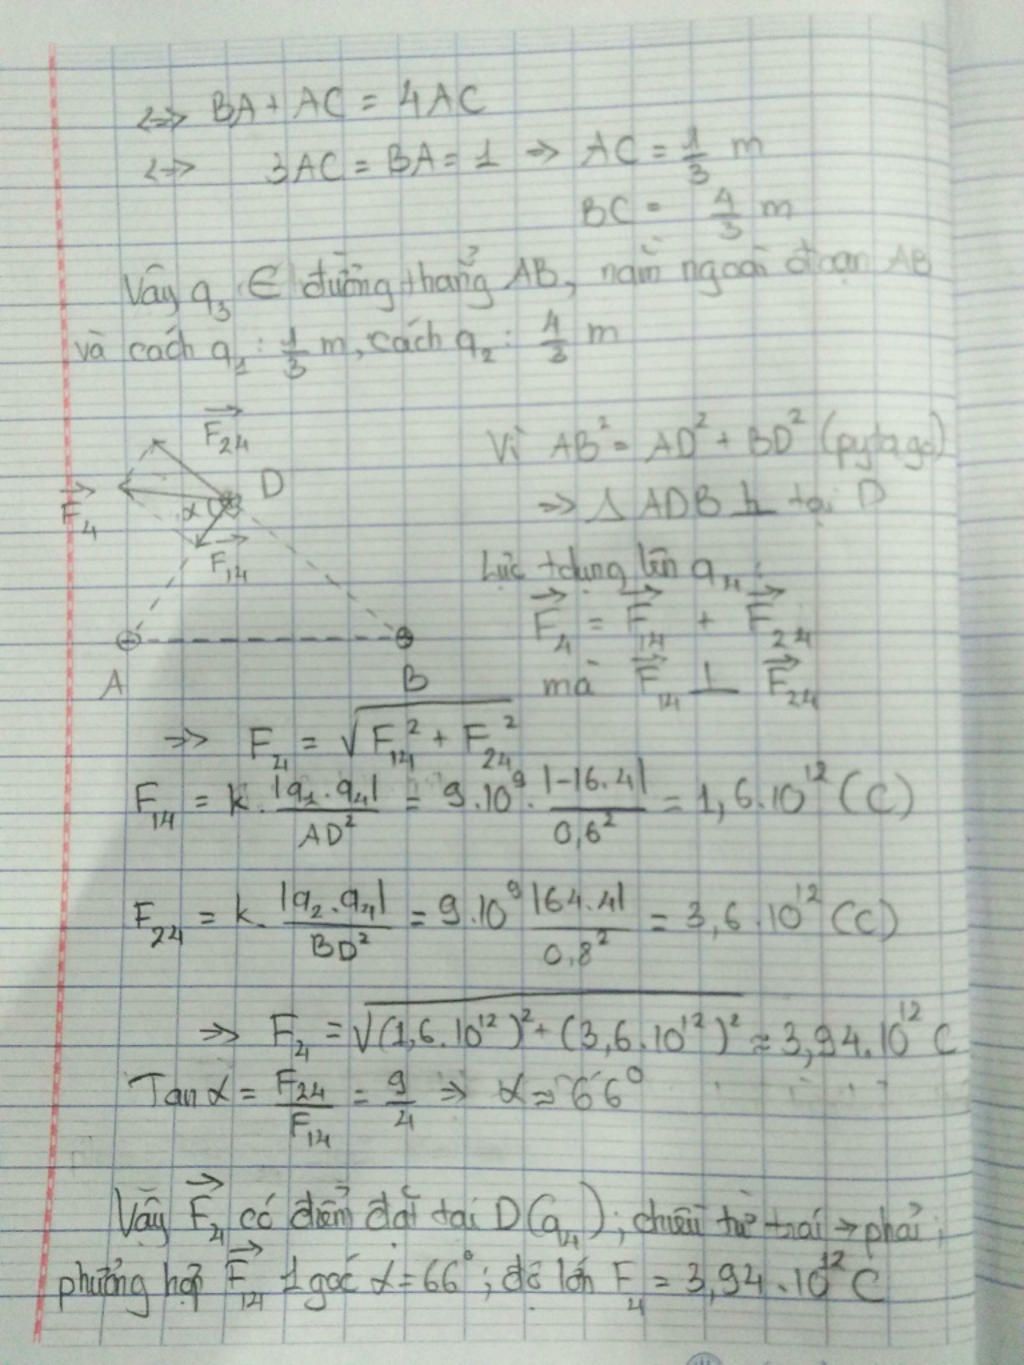 <=> BA + AC = 4AC
<=> 3AC = BA = 1 => AC = 1/3 m
BC = 4/3 m
Vậy q₃ ∈ đường thẳng AB, nằm ngoài đoạn AB
và cách q₁ : 1/3 m, cách q₂ : 4/3 m
F₂₄
D
F₄
α
F₁₄
A
B
Vì AB² = AD² + BD² (pytago)
=> Δ ADB ⊥ tại D
Lực tdụng lên q₄ :
F₄ = F₁₄ + F₂₄
mà F₁₄ ⊥ F₂₄
=> F₄ = √(F₁₄² + F₂₄²)
F₁₄ = k. |q₁.q₄|/AD² = 9.10⁹. |-16.4|/0,6² = 1,6.10¹² (C)
F₂₄ = k. |q₂.q₄|/BD² = 9.10⁹ |64.4|/0,8² = 3,6.10¹² (C)
=> F₄ = √((1,6.10¹²)² + (3,6.10¹²)²) ≈ 3,94.10¹² C
Tan α = F₂₄/F₁₄ = 9/4 => α ≈ 66⁰
Vậy F₄ có điểm đặt tại D(q₄) ; chiều từ trái → phải ;
phương hợp F₁₄ 1 góc α = 66⁰ ; độ lớn F₄ = 3,94.10¹² C